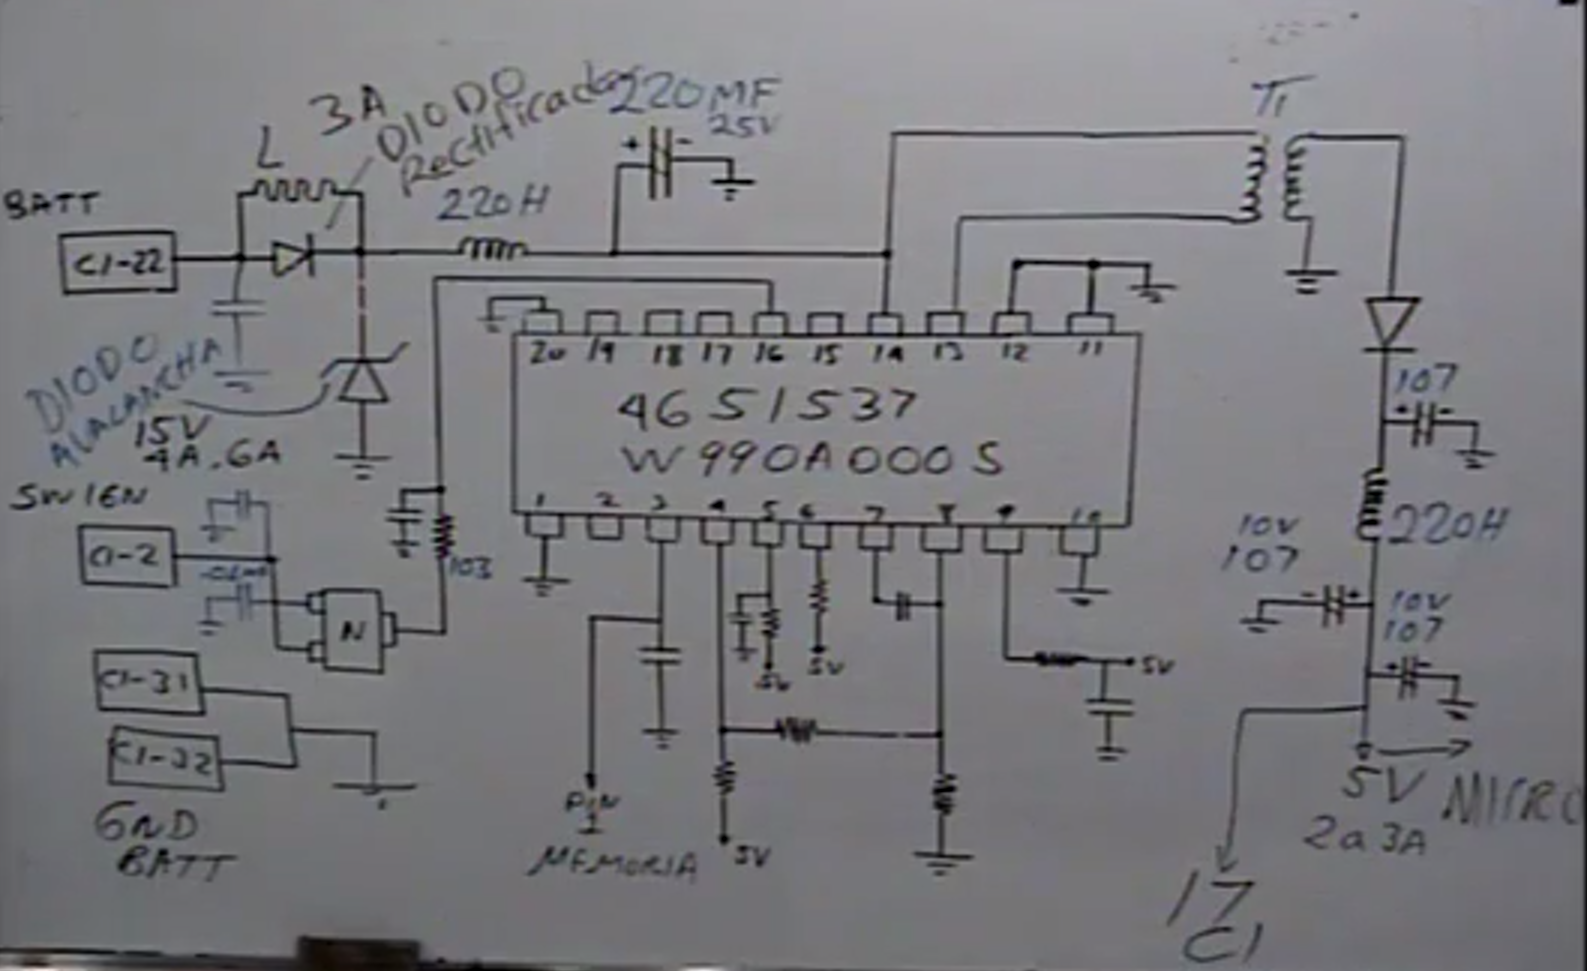 BATT
C1-22
L
3A
DIODO
Rectificador
220H
220MF
25V
T1
DIODO
ALALANCHA
15V
4A.6A
SW IGN
C1-2
N
103
C1-31
C1-32
GND
BATT
20 19 18 17 16 15 14 13 12 11
4651537
W990A000S
1 2 3 4 5 6 7 8 9 10
5V
5V
5V
PIN
1
MEMORIA
5V
107
220H
10V
107
10V
107
5V
MICRO
2a3A
17
C1